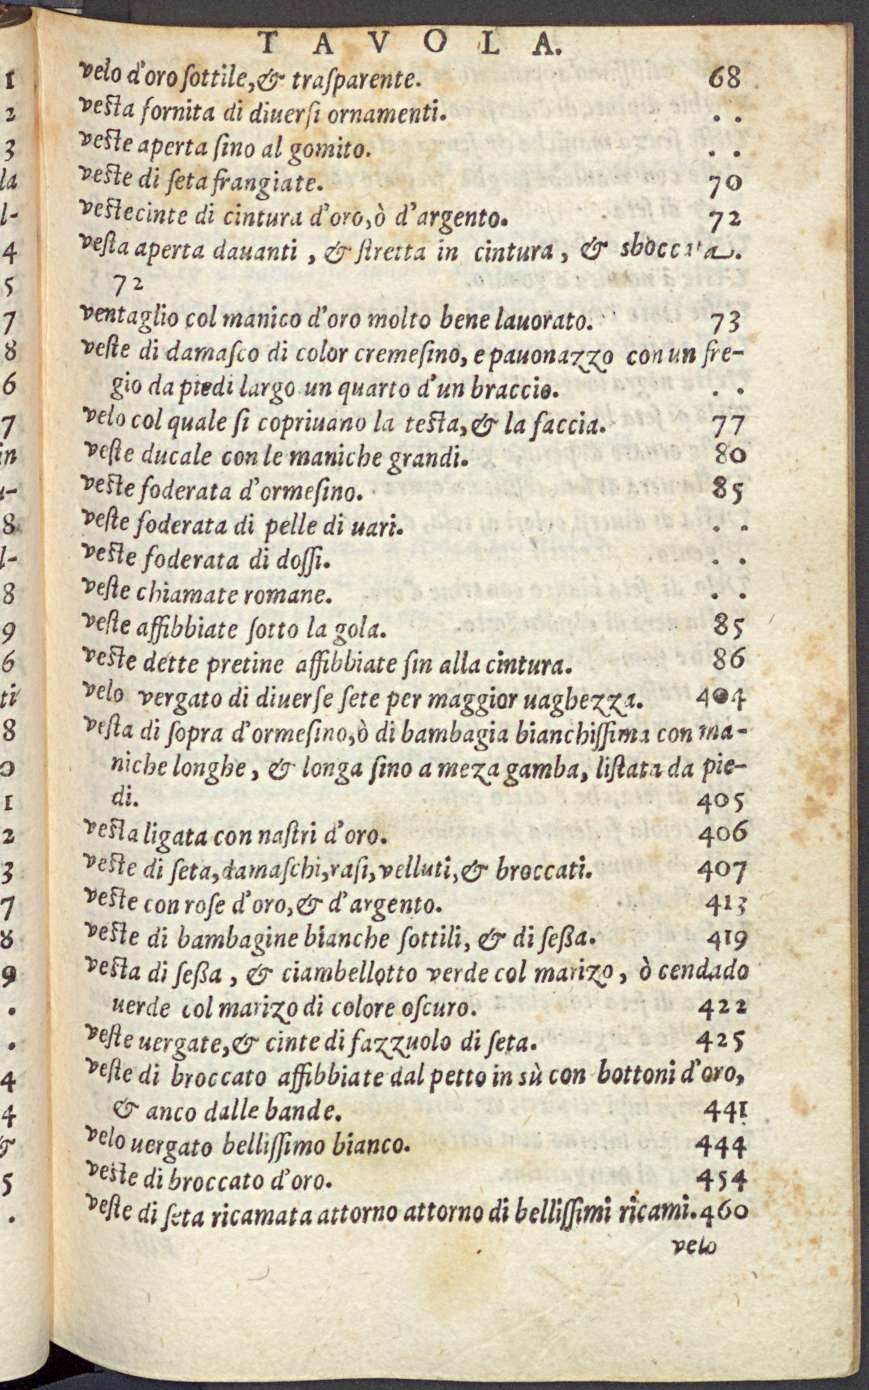 TAVOLA.
velo d'oro sottile,& trasparente. 68
vesta fornita di diuersi ornamenti. . .
veste aperta sino al gomito. . .
veste di seta frangiate. 70
veste cinte di cintura d'oro,ò d'argento. 72
vesta aperta dauanti , & stretta in cintura , & sboccata.
72
ventaglio col manico d'oro molto bene lauorato. 73
veste di damasco di color cremesino, e pauonazzo con un fre-
gio da piedi largo un quarto d'un braccio. . .
velo col quale si copriuano la testa,& la faccia. 77
veste ducale con le maniche grandi. 80
veste foderata d'ormesino. 85
veste foderata di pelle di uari. . .
veste foderata di dossi. . .
veste chiamate romane. . .
veste affibbiate sotto la gola. 85
veste dette pretine affibbiate sin alla cintura. 86
velo vergato di diuerse sete per maggior uaghezza. 404
vesta di sopra d'ormesino,ò di bambagia bianchissima con ma-
niche longhe , & longa sino a meza gamba, listata da pie-
di. 405
vesta ligata con nastri d'oro. 406
veste di seta,damaschi,rasi,velluti,& broccati. 407
veste con rose d'oro,& d'argento. 413
veste di bambagine bianche sottili, & di seßa. 419
vesta di seßa , & ciambellotto verde col marizo , ò cendado
uerde col marizo di colore oscuro. 422
veste uergate,& cinte di fazzuolo di seta. 425
veste di broccato affibbiate dal petto in sù con bottoni d'oro,
& anco dalle bande. 441
velo uergato bellissimo bianco. 444
veste di broccato d'oro. 454
veste di seta ricamata attorno attorno di bellissimi ricami. 460
velo